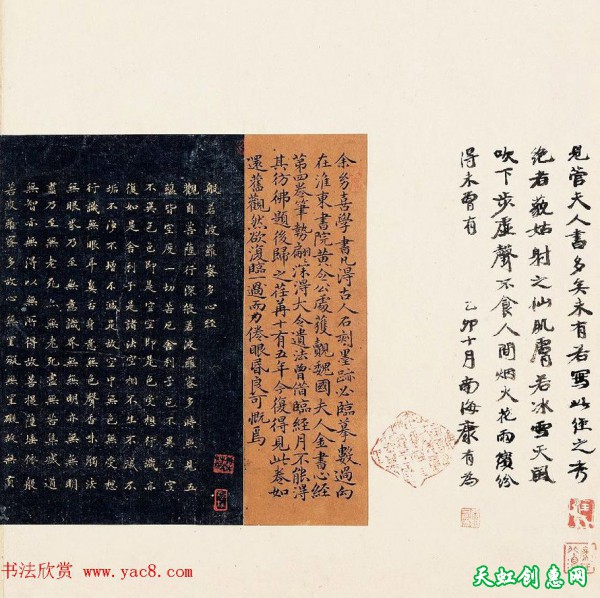 見管夫人書多矣未有若寫此經之秀
絕者藐姑射之仙肌膚若冰雪天風
吹下步虛聲不食人間烟火花雨繽紛
得未曾有
乙卯十月南海康有為
余喜學書凡得古人石刻墨跡必臨摹數過向
在淮東書院黃令公處獲覯魏國夫人金書心經
第四卷筆勢翩深得大令遺法曾借臨經月不能得
其彷彿題後歸之荏苒十有五年今復得見此卷如
還舊觀然欲復臨一過而力倦眼昏良可慨焉
般若波羅蜜多心經
觀自在菩薩行深般若波羅蜜多時照見五
蘊皆空度一切苦厄舍利子色不異空空
不異色色即是空空即是色受想行識亦
復如是舍利子是諸法空相不生不滅不
垢不淨不增不減是故空中無色無受想
行識無眼耳鼻舌身意無色聲香味觸法
無眼界乃至無意識界無無明亦無無明
盡乃至無老死亦無老死盡無苦集滅道
無智亦無得以無所得故菩提薩埵依般
若波羅蜜多故心無罣礙無罣礙故無有
书法欣赏 www.yac8.com
天虹创意网